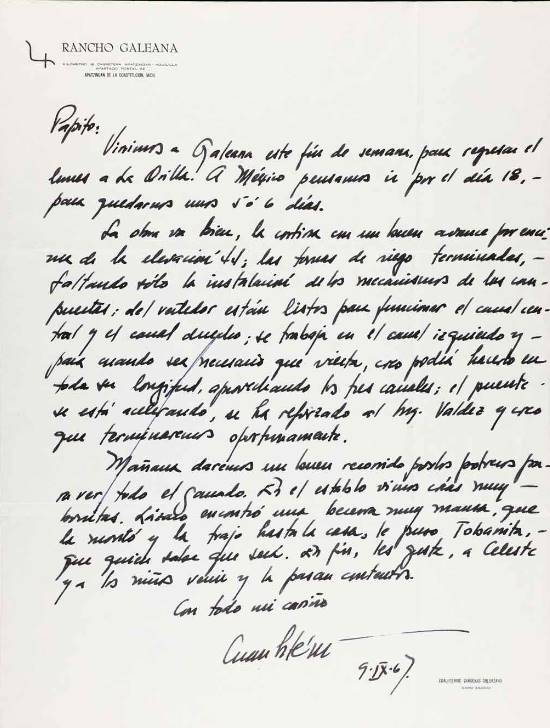 RANCHO GALEANA
APATZINGAN DE LA CONSTITUCION, MICH.
Papito:
Vinimos a Galeana este fin de semana, para regresar el
lunes a La Orilla. A México pensamos ir por el día 18,-
para quedarnos unos 5 ó 6 días.
La obra va bien, la cortina con un buen avance por enci-
ma de la elevación 44; las tomas de riego terminadas, -
faltando sólo la instalación de los mecanismos de las com-
puertas; del vertedor están listos para funcionar el canal cen-
tral y el canal derecho; se trabaja en el canal izquierdo y -
para cuando sea necesario que vierta, creo podrá hacerlo en
toda su longitud, aprovechando los tres canales; el puente -
se está acelerando, se ha reforzado al Ing. Valdez y creo
que terminaremos oportunamente.
Mañana daremos un buen recorrido por los potreros pa-
ra ver todo el ganado. En el establo vimos crías muy -
bonitas. Lázaro encontró una becerra muy mansa, que
la montó y la trajo hasta la casa, le puso Tobanita, -
que quien sabe que será. En fin, les gusta, a Celeste
y a los niños venir y la pasan contentos.
Con todo mi cariño
Cuauhtémoc
9-IX-67.